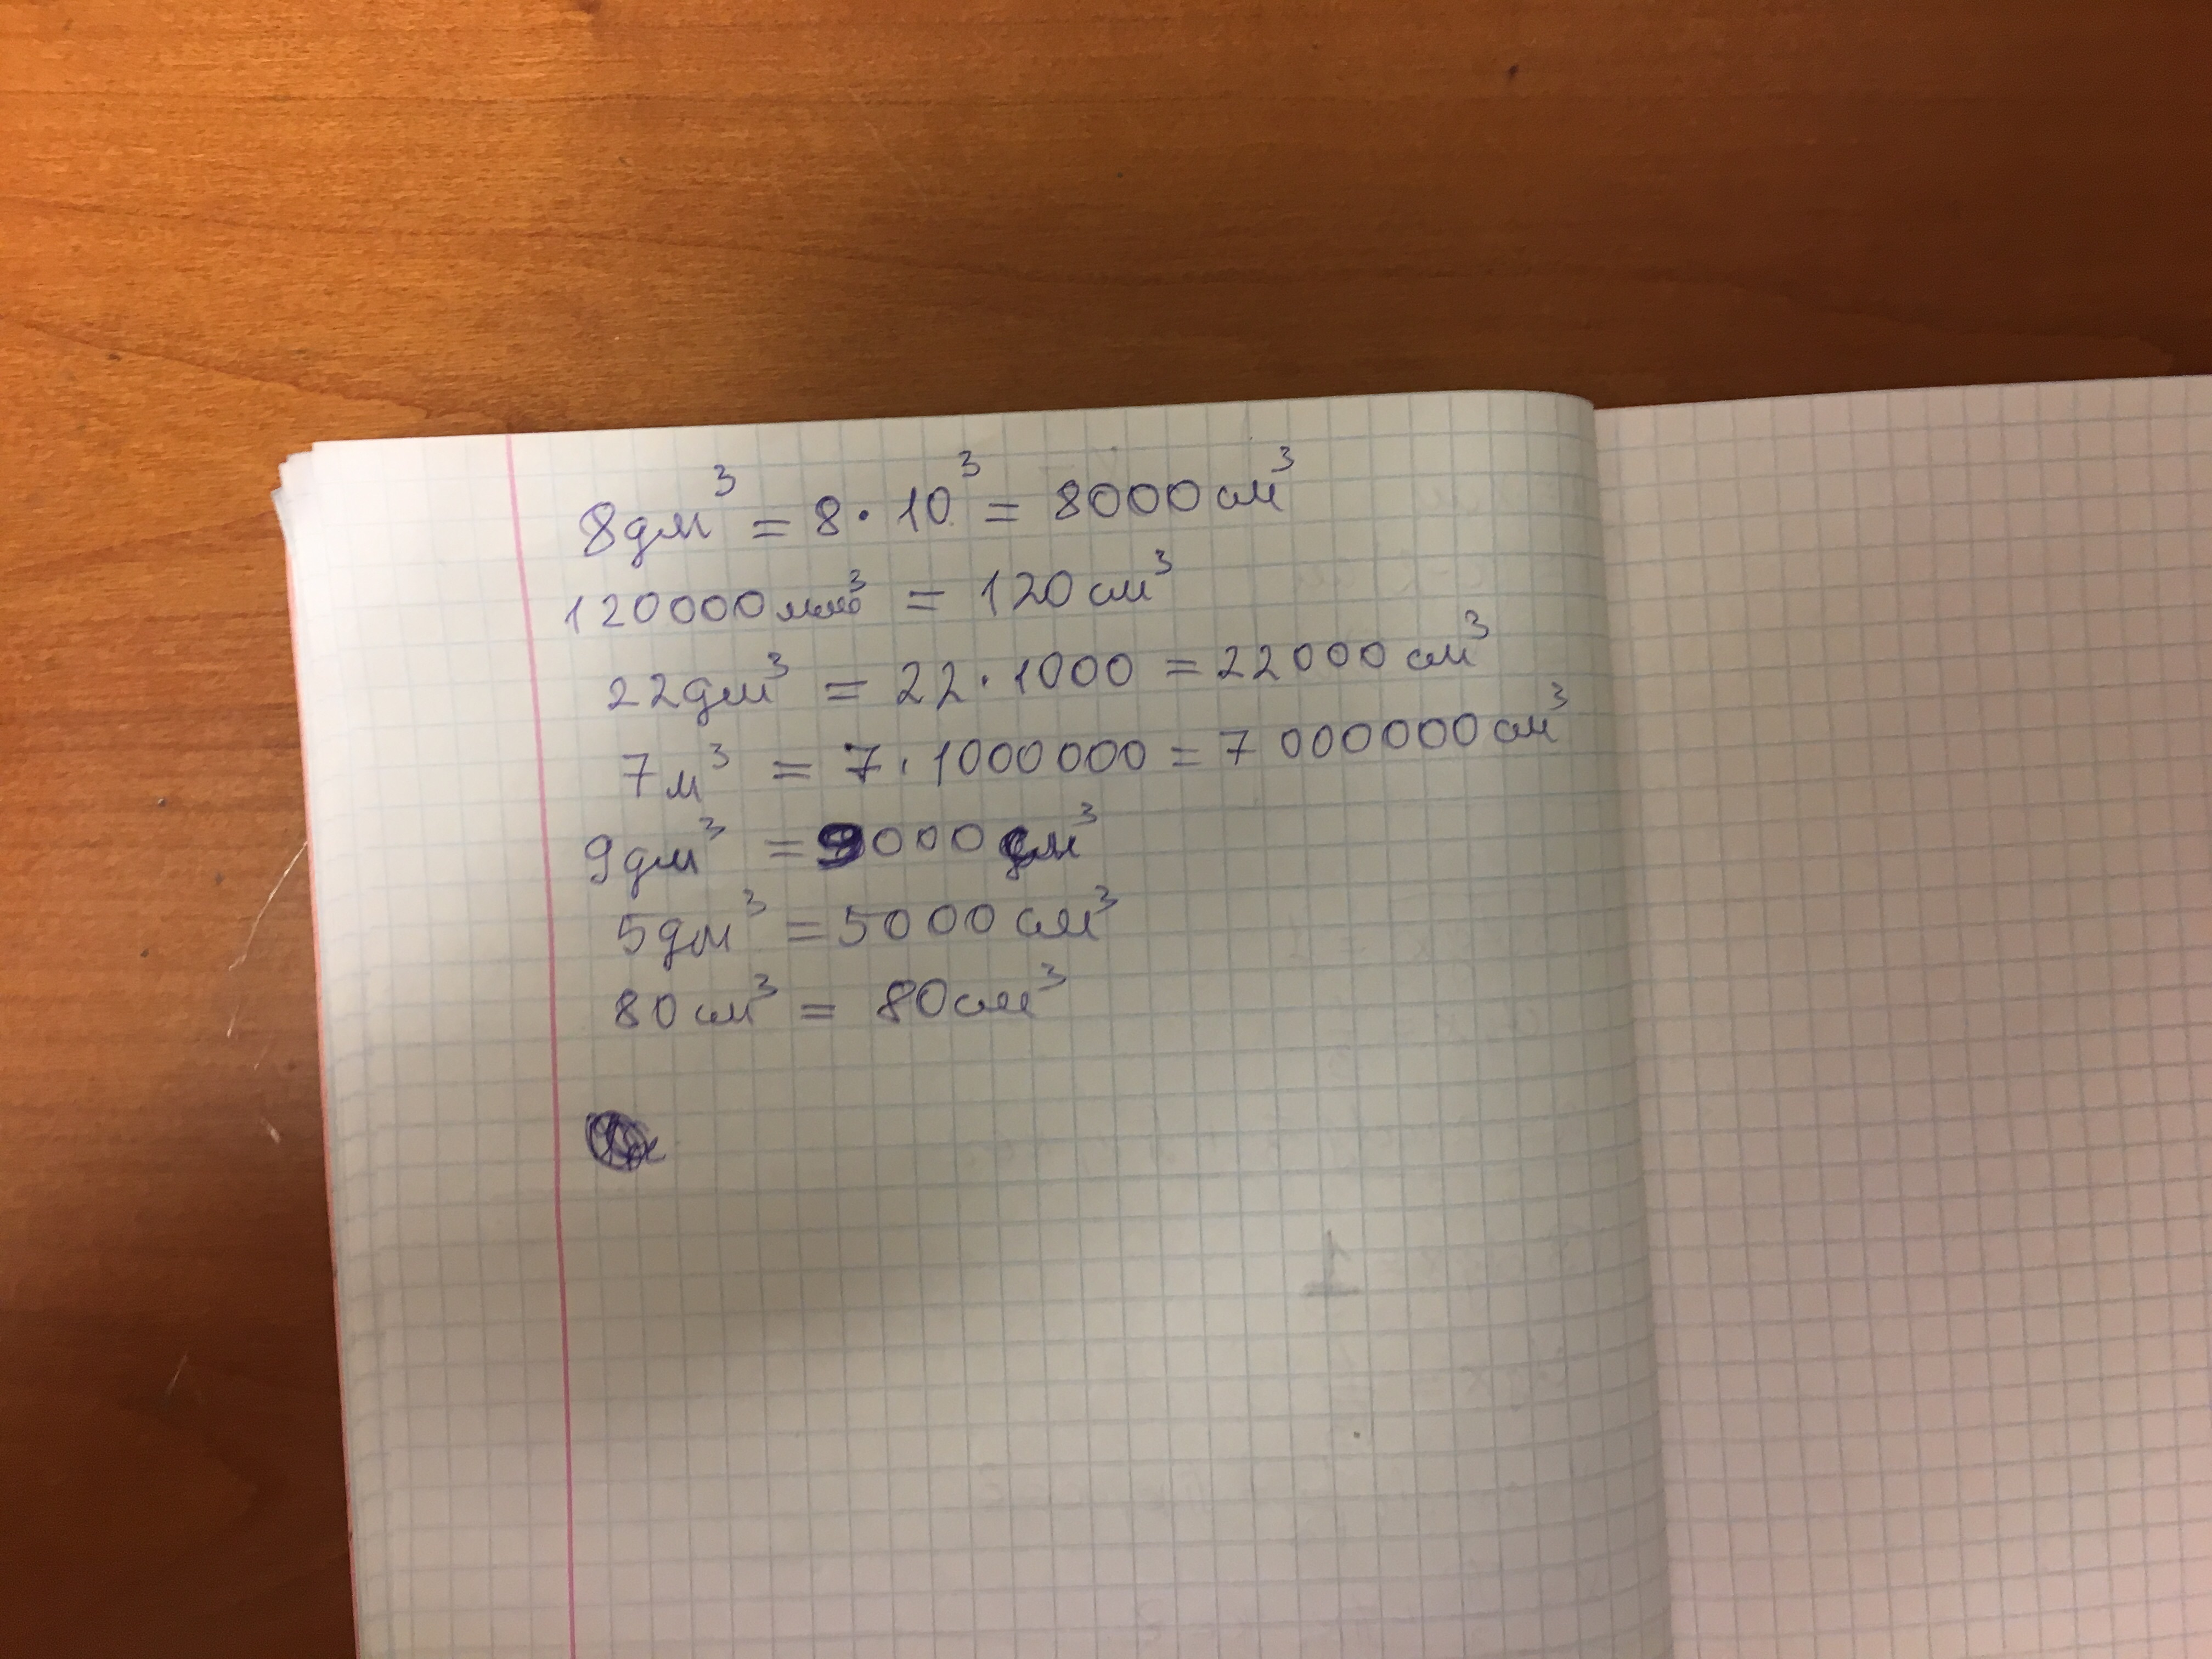 8дм³ = 8 · 10³ = 8000см³
120000мм³ = 120см³
22дм³ = 22 · 1000 = 22000см³
7м³ = 7 · 1000000 = 7000000см³
9дм³ = 9000см³
5дм³ = 5000см³
80см³ = 80см³